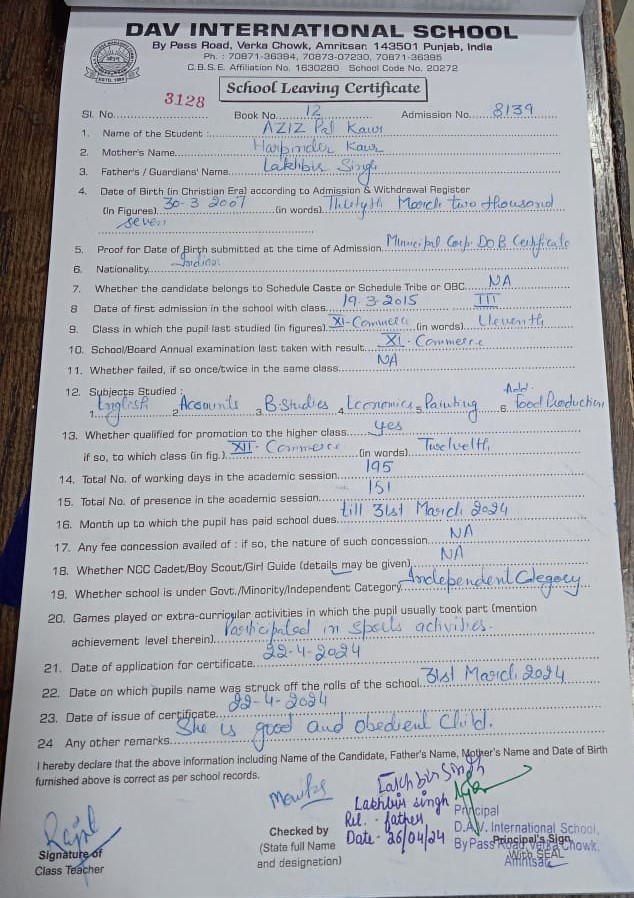 DAV INTERNATIONAL SCHOOL
By Pass Road, Verka Chowk, Amritsar. 143501 Punjab, India
Ph. : 70871-36394, 70873-07230, 70871-36395
C.B.S.E. Affiliation No. 1630280 School Code No. 20272
School Leaving Certificate
Sl. No. 3128 Book No. 12 Admission No. 8139
1. Name of the Student : AZIZ Pal Kaur
2. Mother's Name Harpinder Kaur
3. Father's / Guardians' Name Lakhbir Singh
4. Date of Birth (in Christian Era) according to Admission & Withdrawal Register
(In Figures) 30-3 2007 (in words) Thirtyth March two thousand
seven
5. Proof for Date of Birth submitted at the time of Admission Municipal Corp. DoB Certificate
6. Nationality Indian
7. Whether the candidate belongs to Schedule Caste or Schedule Tribe or OBC NA
8 Date of first admission in the school with class 19.3.2015 III
9. Class in which the pupil last studied (in figures) XI-Commerce (in words) Eleventh
10. School/Board Annual examination last taken with result XI-Commerce
11. Whether failed, if so once/twice in the same class NA
12. Subjects Studied :
1. English 2 Accounts 3 B.Studies 4 Economics 5 Painting 6 Add. Food Production
13. Whether qualified for promotion to the higher class yes
if so, to which class (in fig.) XII-Commerce (in words) Twelveth
14. Total No. of working days in the academic session 195
15. Total No. of presence in the academic session 151
16. Month up to which the pupil has paid school dues till 31st March 2024
17. Any fee concession availed of : if so, the nature of such concession NA
18. Whether NCC Cadet/Boy Scout/Girl Guide (details may be given) NA
19. Whether school is under Govt./Minority/Independent Category Independent Category
20. Games played or extra-curricular activities in which the pupil usually took part (mention
achievement level therein) Participated in sports activities.
21. Date of application for certificate 22-4-2024
22. Date on which pupils name was struck off the rolls of the school 31st March 2024
23. Date of issue of certificate 22-4-2024
24 Any other remarks She is good and obedient child.
I hereby declare that the above information including Name of the Candidate, Father's Name, Mother's Name and Date of Birth
furnished above is correct as per school records.
Lakhbir Singh
Lakhbir singh
Rel. - father
Date - 26/04/24
Signature of
Class Teacher
Checked by
(State full Name
and designation)
Principal
D.A.V. International School,
By Pass Road, Verka Chowk,
Amritsar
Principal's Sign.
With SEAL